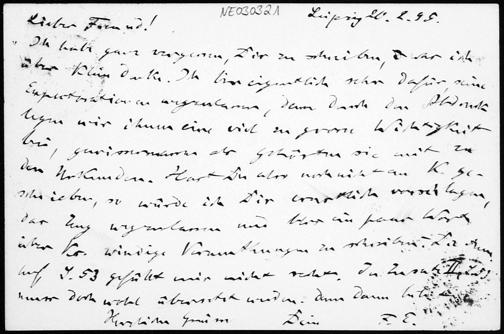 NE030321
Leipzig 20. 2. 95.
Lieber Freund!
Ich hatte ganz vergessen, Dir zu schreiben, was ich
über Klein denke. Ich bin eigentlich sehr dafür seine
Expectorationen wegzulassen, denn durch den Abdruck
legen wir ihnen eine viel zu grosse Wichtigkeit
bei, gewissermassen als gehörten sie mit zu
den Urkunden. Hast Du aber noch nicht an K. ge-
schrieben, so würde ich Dir ernstlich vorschlagen,
das Zeug wegzulassen und blos ein paar Worte
über Kr. windige Vermuthungen zu schreiben. Die Anm.
auf S. 53 gefällt mir nicht recht. Der Zusatz
muss doch wohl übersetzt werden. denn dann
Herzliche Grüsse Dein F. E.